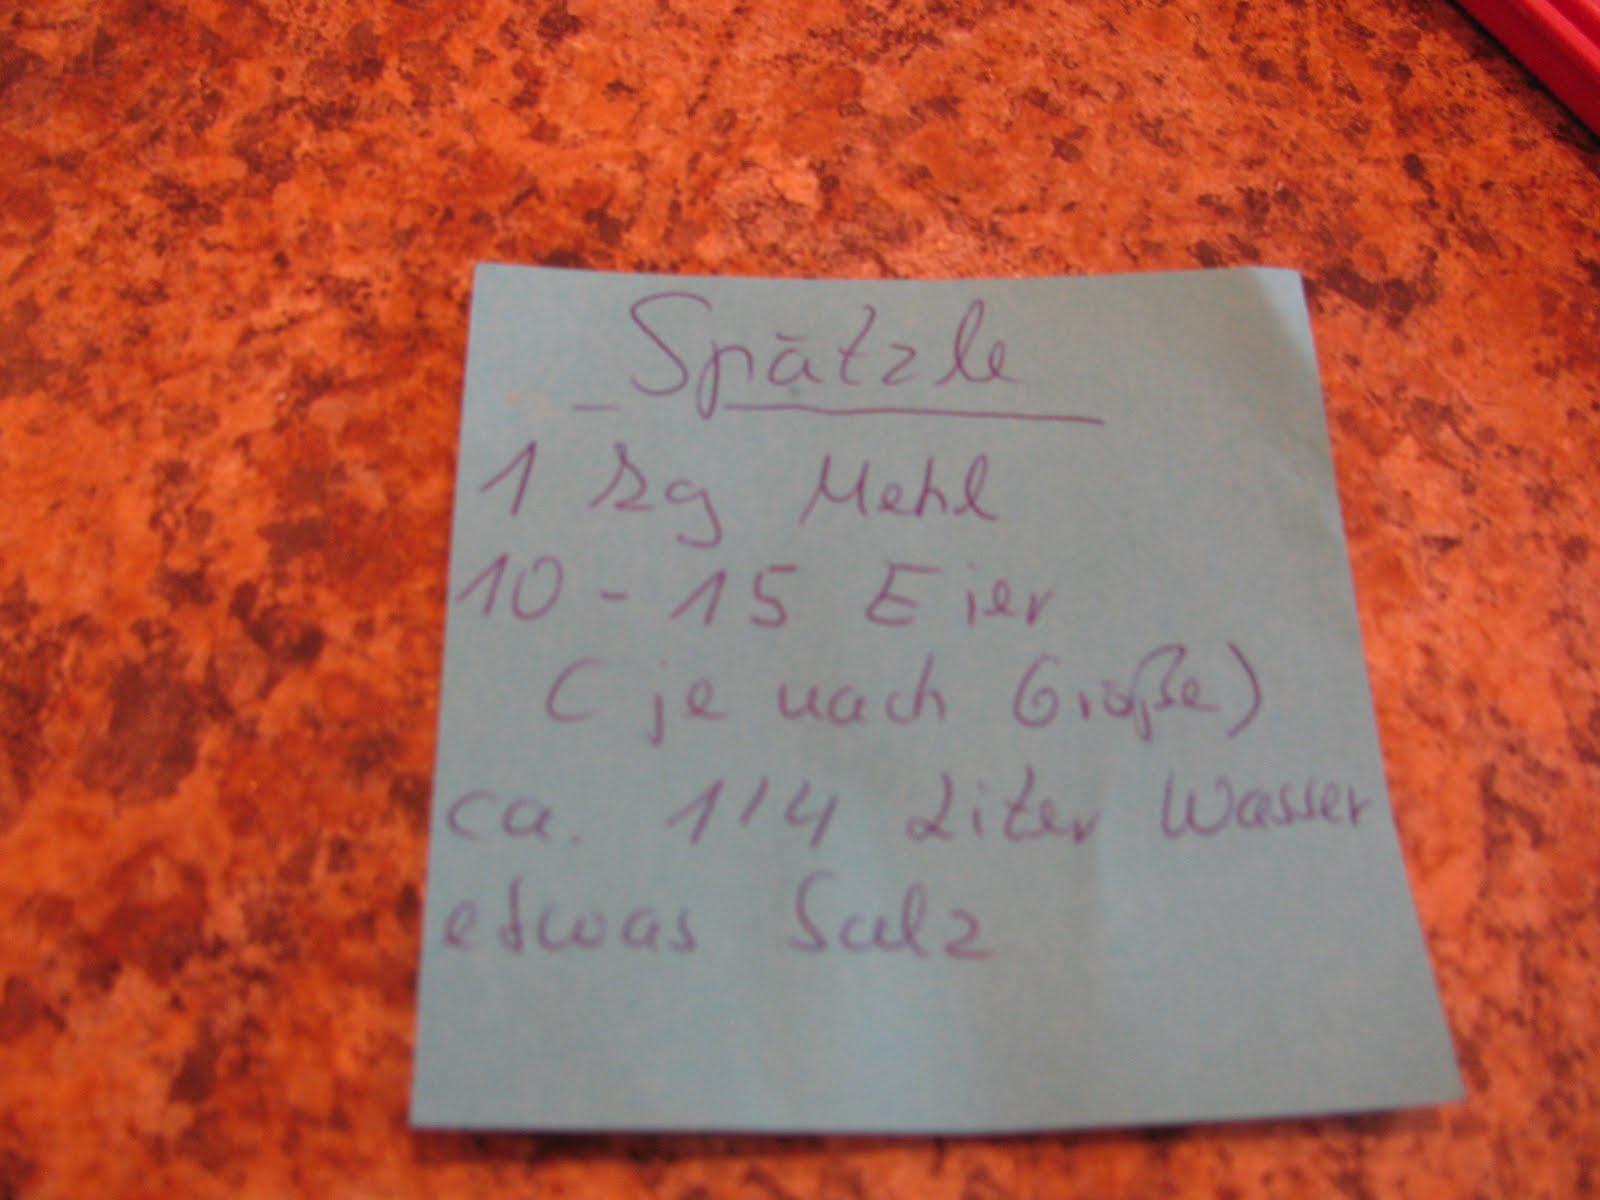 Spätzle
1 kg Mehl
10 - 15 Eier
(je nach Größe)
ca. 1/4 Liter Wasser
etwas Salz